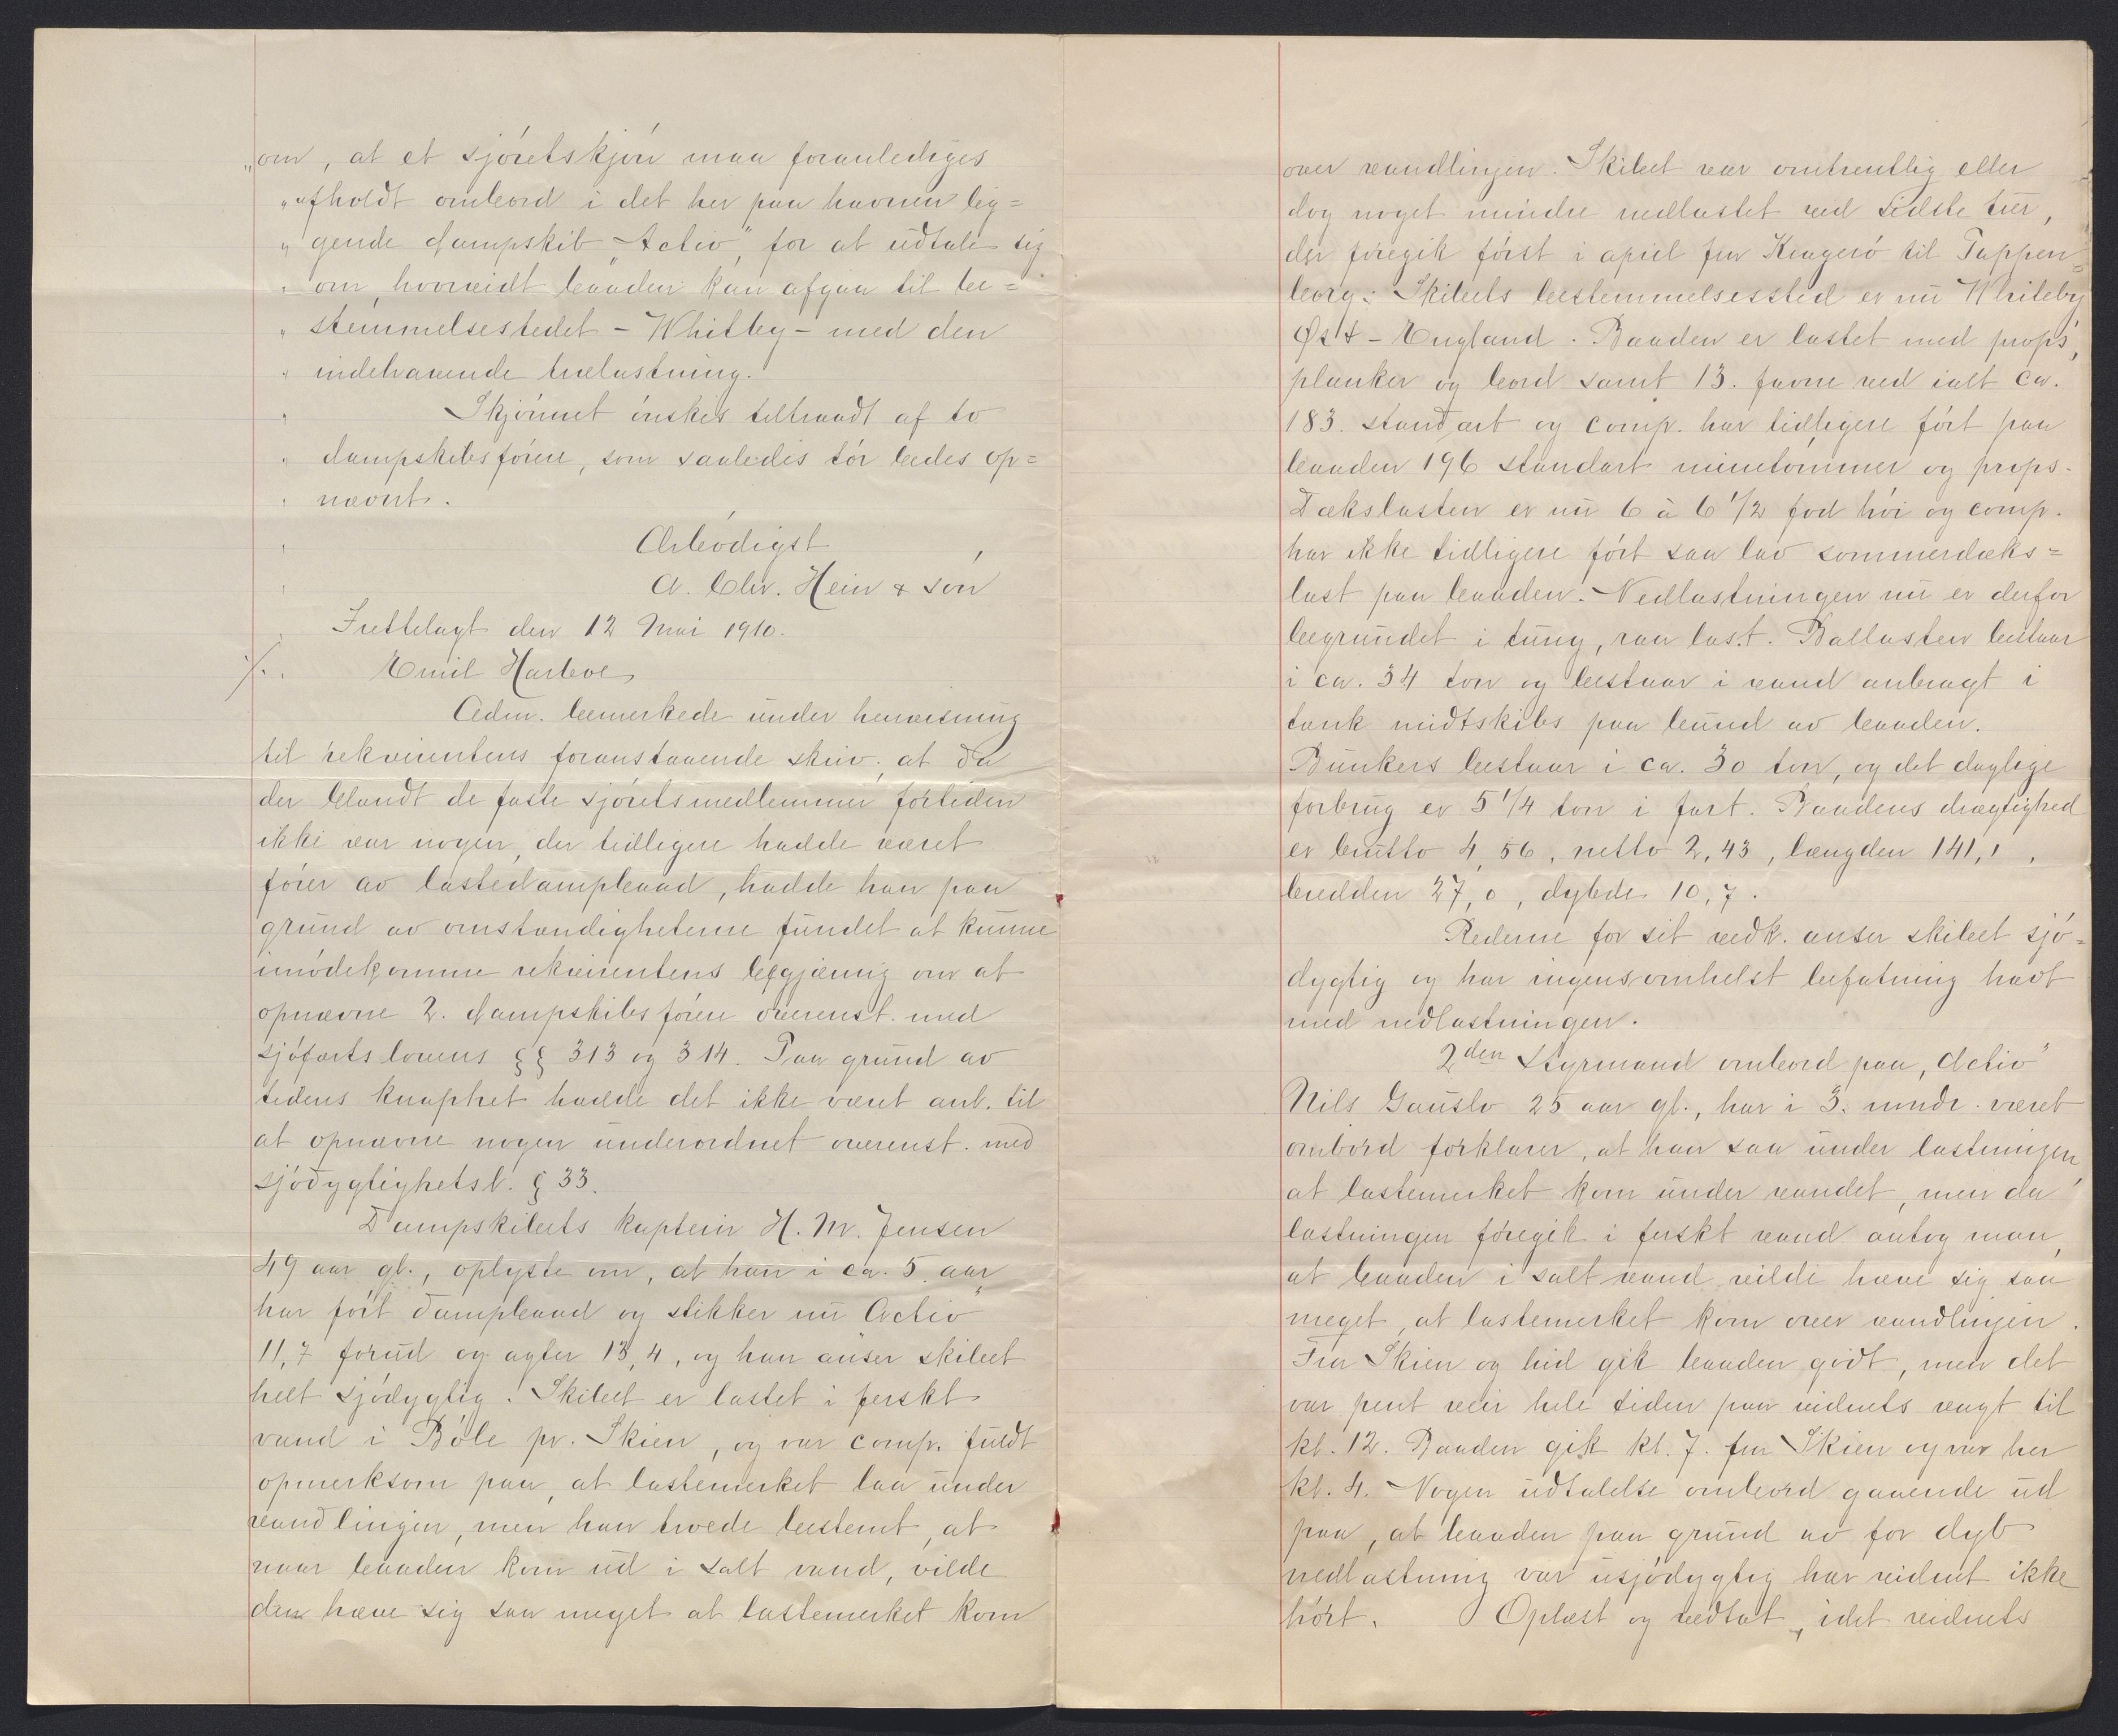 „om, at et sjöretskjön maa foranlediges
„ afholdt ombord i det her paa havnen lig=
„ gende dampskib „Activ", for at udtale sig
„ om, hvorvidt baaden kan afgaa til be=
„ stemmelsestedet - Whitby - med den
„ indehavende trælastning.
„ Skjönnet önskes tiltraadt af to
„ dampskibsförere, som saaledes tör bedes op=
„ nævnt.
„ Ærbödigst
„ A. Chr. Hein & sön
„ Fremlagt den 12 Mai 1910.
./. „ Emil Harboe
Adm. bemerkede under henvisning
til rekvirentens foranstaaende skriv. at da
der blandt de faste sjöretsmedlemmer fortiden
ikke var nogen, der tidligere hadde været
förer av lastedampbaad, hadde han paa
grund av omstændigheterne fundet at kunne
imödekomme rekvirentens begjæring om at
opnævne 2. dampskibsförere overenst. med
sjöfartslovens §§ 313 og 314. Paa grund av
tidens knaphet hadde det ikke været anl. til
at opnævne nogen underordnet overenst. med
sjödygtighetsl. § 33.
Dampskibets kaptein H. M. Jensen
49 aar gl., oplyste om, at han i ca. 5 aar
har fört dampbaad og stikker nu Activ"
11,7 forud og agter 13,4, og han anser skibet
helt sjödygtig. Skibet er lastet i ferskt
vand i Böle pr. Skien, og var comp. fuldt
opmerksom paa, at lastemerket laa under
vandlinjen, men han troede bestemt, at
naar baaden kom ud i salt vand, vilde
den hæve sig saa meget at lastemerket kom
over vandlinjen. Skibet var omtrentlig eller
dog noget mindre nedlastet ved sidste tur,
der foregik först i april fra Kragerö til Pappen=
borg. Skibets bestemmelsessted er nu Whiteby
Øst - England. Baaden er lastet med props,
planker og bord samt 13. favne ved ialt ca.
183. standart og comp. har tidligere fört paa
baaden 196 standart minetömmer og props.
Dækslasten er nu 6 à 6 1/2 fod höi og comp.
har ikke tidligere fört saa lav sommerdæks=
last paa baaden. Nedlastningen nu er derfor
begrundet i tung, raa last. Ballasten bestaar
i ca. 34 ton og bestaar i vand anbragt i
tank midtskibs paa bund av baaden.
Bunkers bestaar i ca. 30 ton, og det daglige
forbrug er 5 1/4 ton i fart. Baadens drægtighed
er brutto 4,56, netto 2,43, længden 141,1,
bredden 27,0, dybde 10,7.
Rederne for sit vedk. anser skibet sjö=
dygtig og har ingensomhelst befatning havt
med nedlastningen.
2den Styrmand ombord paa „Activ"
Nils Gauslo 25 aar gl., har i 3. mndr. været
ombord forklarer, at han saa under lastningen,
at lastemerket kom under vandet, men da
lastningen foregik i ferskt vand antog man,
at baaden i salt vand vilde hæve sig saa
meget, at lastemerket kom over vandlinjen.
Fra Skien og hid gik baaden godt, men det
var pent veir hele tiden paa vidnets vagt til
kl. 12. Baaden gik kl. 7. fra Skien og var her
kl. 4. Nogen udtalelse ombord gaaende ud
paa, at baaden paa grund av for dyb
nedlastning var usjödygtig har vidnet ikke
hört. Oplæst og vedtat, idet vidnets